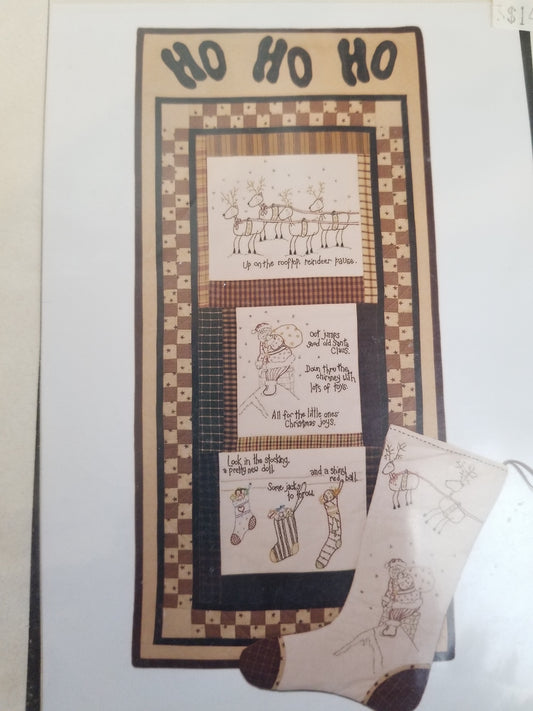 $14
HO HO HO
Up on the rooftop, reindeer pause.
Out jumps
good old Santa
Claus.
Down thru the
chimney with
lots of toys.
All for the little ones'
Christmas joys.
Look in the stocking,
a pretty new doll.
Some jacks
to throw.
and a shiny
red ball.